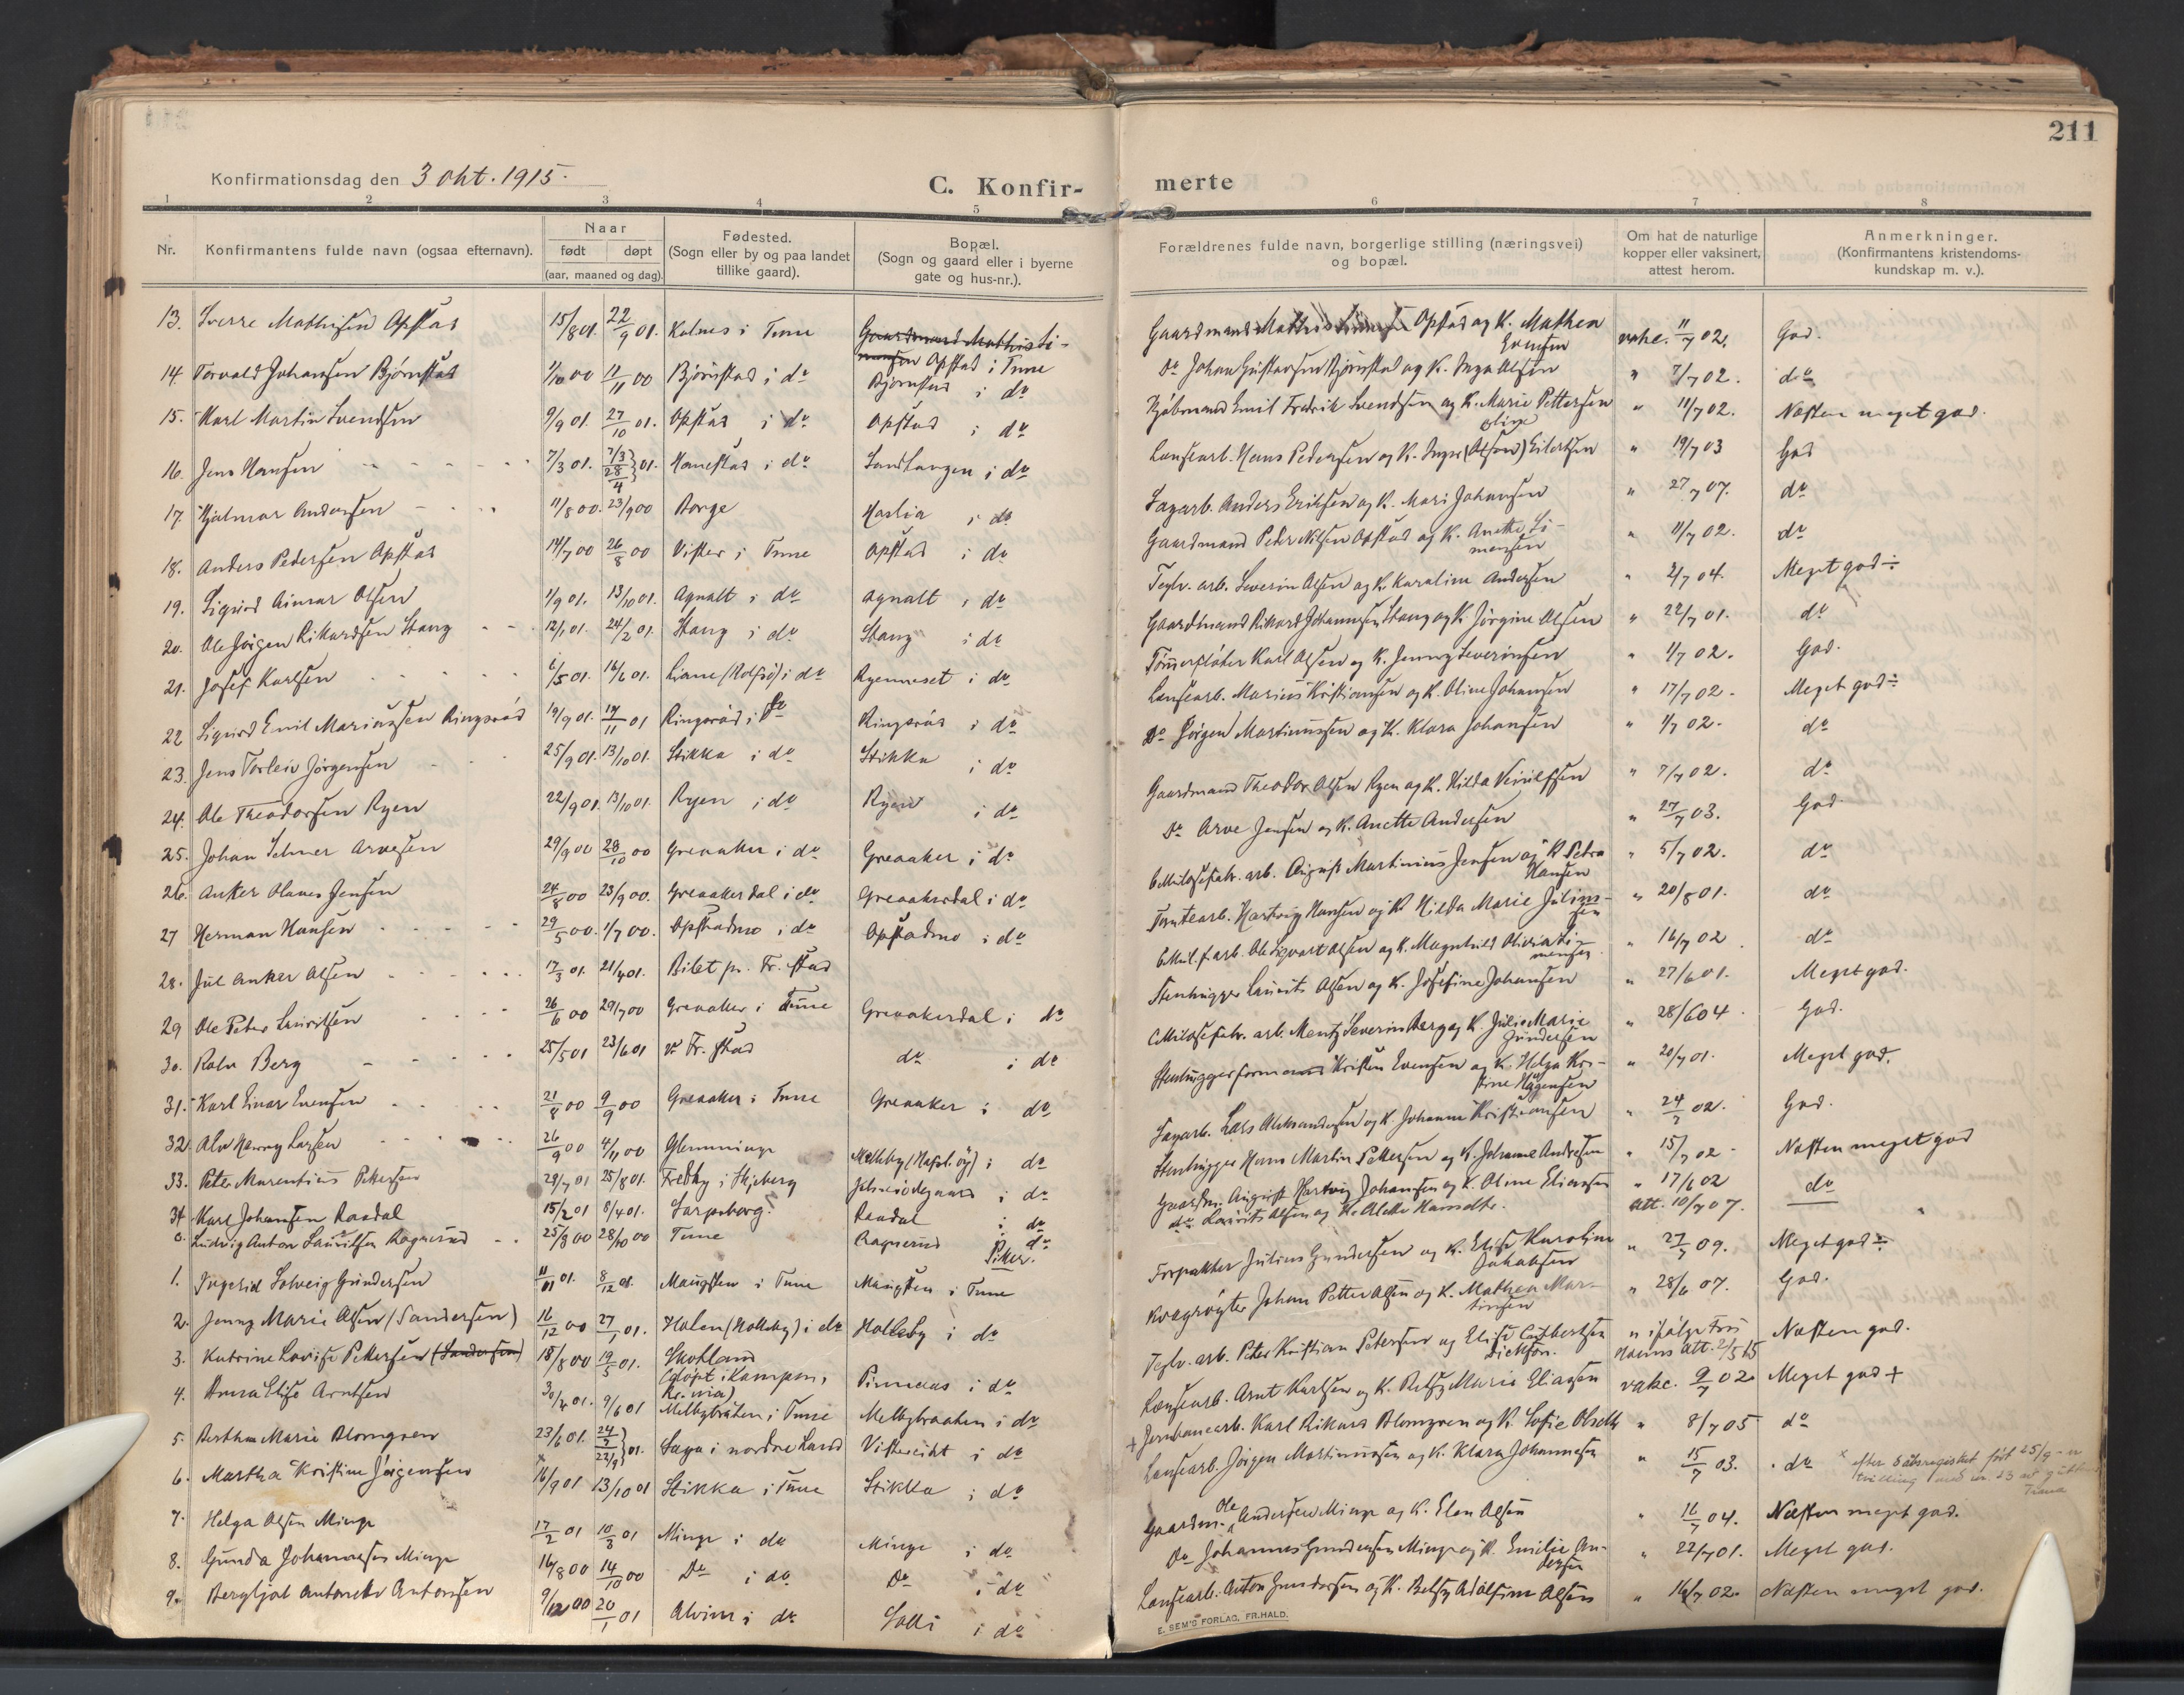 211
Konfirmationsdag den 3 okt. 1915.
C. Konfir-
merte
1 2 3 4 5 6 7 8
Nr. Konfirmantens fulde navn (ogsaa efternavn). Naar født døpt (aar, maaned og dag). Fødested. (Sogn eller by og paa landet tillike gaard). Bopæl. (Sogn og gaard eller i byerne gate og hus-nr.). Forældrenes fulde navn, borgerlige stilling (næringsvei) og bopæl. Om hat de naturlige kopper eller vaksinert, attest herom. Anmerkninger. (Konfirmantens kristendomskundskap m. v.).
13. Sverre Mathisen Opstad 15/8 01. 22/9 01. Kalnes i Tune Gaardmand Mathis Simensen Opstad i Tune Gaardmand Mathis Simensen Opstad og K. Mathea Evensen vakc. 11/7 02. God.
14. Torvald Johansen Bjørnstad 1/10 00 11/11 00 Bjørnstad i do Bjørnstad i do Do Johan Gustavsen Bjørnstad og K. Inga Olsen " 7/7 02. do
15. Karl Martin Svendsen 9/9 01. 27/10 01. Opstad i do Opstad i do Kjøbmand Emil Fredrik Svendsen og K. Marie Pettersen " 11/7 02. Næsten meget god.
16. Jens Hansen 7/3 01. 7/3 28/4 01. Hanestad i do Sandtangen i do Løsearb. Hans Pedersen og K. Inger Oline (Olsen) Eilertsen " 19/7 03 God
17. Hjalmar Andersen 11/8 00. 23/9 00 Borge Haslia i do Sagarb. Anders Eriksen og K. Mari Johansen " 27/7 07. do
18. Anders Pedersen Opstad 14/7 00 26/8 00 Vister i Tune Opstad i do Gaardmand Peder Nilsen Opstad og K. Anette Simensen " 11/7 02. do
19. Sigurd Einar Olsen 1/9 01. 13/10 01. Agnalt i do Agnalt i do Teglv. arb. Severin Olsen og K. Karoline Andersen " 2/7 04. Meget god÷
20. Ole Jörgen Rikardsen Stang 12/1 01. 24/2 01. Stang i do Stang i do Gaardmand Rikard Johannesen Stang og K. Jörgine Olsen " 22/7 01. do
21. Josef Karlsen 6/5 01. 16/6 01. Liane (Rolfsö) i do Ryenneset i do Tömmerfløter Karl Olsen og K. Jenny Severinsen " 1/7 02. God.
22 Sigurd Emil Mariussen Ringsrød 19/9 01. 17/11 01 Ringsrød i do Ringsrød i do Løsearb. Marius Kristiansen og K. Oline Johansen " 17/7 02. Meget god÷
23. Jens Torleiv Jörgensen 25/9 01. 13/10 01. Stikka i do Stikka i do Do Jörgen Martinussen og K. Klara Johansen " 1/7 02. do
24. Ole Theodorsen Ryen 22/9 01. 13/10 01. Ryen i do Ryen i do Gaardmand Theodor Olsen Ryen og K. Hilda " 7/7 02. do
25. Johan Selmer Arvesen 29/9 00 28/10 00 Greaaker i do Greaaker i do Do Arve Jensen og K. Anette Andersen " 27/7 03. God
26. Anker Olaves Jensen 24/8 00 23/9 00. Greaakerdal i do Greaakerdal i do Cellulosefabr. arb. August Martinius Jensen og K. Petra Hansen " 5/7 02. do
27 Herman Hansen 29/5 00. 1/7 00. Opstadmo i do Opstadmo i do Tomtearb. Hartvig Hansen og K. Hilda Marie Juliussen " 20/8 01. do
28. Jul Anker Olsen 17/3 01. 21/4 01. Bilet pr. Fr.stad Cellul.f.arb. Ole Sigvart Olsen og K. Magnhild Olivia Simensen " 16/7 02. do
29 Ole Peter Lauritsen 26/6 00 29/7 00 Greaaker i Tune Greaakerdal i do Stenhugger Laurits Olsen og K. Josefine Johansen " 27/6 01. Meget god.
30. Rolv Berg 25/5 01 23/6 01 v. Fr.stad do i do Cellulosefabr. arb. Mentz Severin Berg og K. Julie Marie Gundersen " 28/6 04. God.
31. Karl Einar Evensen 21/8 00 9/9 00 Greaaker i Tune Greaaker i do Stenhuggerformand Kristen Evensen og K. Helga Kristine Hågensen " 20/7 01. Meget god.
32. Alv Henry Larsen 26/9 00 4/11 00 Glemminge Melleby (Hafsl. öy) i do Sagarb. Lars Aleksandersen og K. Johanne Kristiansen " 24/7 02. God.
33. Peter Marentius Pettersen 29/7 01 25/8 01. Fredby i Skjeberg i do Stenhugger Hans Martin Pettersen og K. Johanne Andresen " 15/7 02 Næsten meget god
34 Karl Johansen Raadal 15/2 01 8/4 01. Sarpsborg. Raadal i do Gaardm. August Hartvig Johansen og K. Oline Eliassen " 17/6 02 do
Ludvig Anton Lauritsen Ragnerud 25/8 00 28/10 00 Tune Ragnerud i do do Laurits Olsen og K. Alette att. 10/7 07.
Piker.
1. Ingerid Solveig Gundersen 11/01 01. 8/12 01. Maugsten i Tune Maugsten i Tune Forpakter Julius Gundersen og K. Elise Karoline Johansen " 27/7 09. Meget god÷
2. Jenny Marie Olsen (Sandersen) 16/12 00 27/1 01. Holen (Holleby) i do Holleby i do Krøgrøyter Johan Petter Olsen og K. Mathea Martinsen " 28/6 07. God.
3. Katrine Lovise Pettersen (Sandersen) 18/8 00 19/5 01. Skotland (døpt i Kampen, Kr.ania) Pinnaas i do Teglv. arb. Peter Kristian Petersen og Elise Cuthbertsen Dickson. " ifølge Fris Næsten god.
4. Anna Elise Arntsen 30/4 01. 9/6 01 Melbybråten i Tune Melbybraaten i do Løsearb. Arnt Karlsen og K. Betsy Marie Eliassen vakc. 9/7 02 Meget god +
5. Bertha Marie Blomgren 23/6 01. 24/7 22/9 01. Saga i nordre Land Vistereiet i do + Jernbanearb. Karl Rikard Blomgren og K. Sofie Olseth " 8/7 05 do
6. Martha Kristine Jörgensen 16/9 01 13/10 01 Stikka i Tune Stikka i do Løsearb. Jörgen Martinussen og K. Klara Johannesen " 15/7 03. do × efter dåbsregistret født 25/9 - er tvilling med nr. 23
7. Helga Olsen Minge 17/2 01 10/3 01 Minge i do Minge i do Gaardm. Ole Andersen Minge og K. Elen Olsen " 16/7 04. Næsten meget god.
8. Gunda Johannesen Minge 16/8 00 14/10 00 Do i do Do i do Do Johannes Gundersen Minge og K. Emilie Andersen " 22/7 01. Meget god.
9. Bergljot Antonette Antonsen 9/12 00 20/1 01 Alvim i do Solli i do Løsearb. Anton Gundersen og K. Betsy Adolfine Olsen " 16/7 02. Næsten meget god.
E. SEM'S FORLAG, FR.HALD.